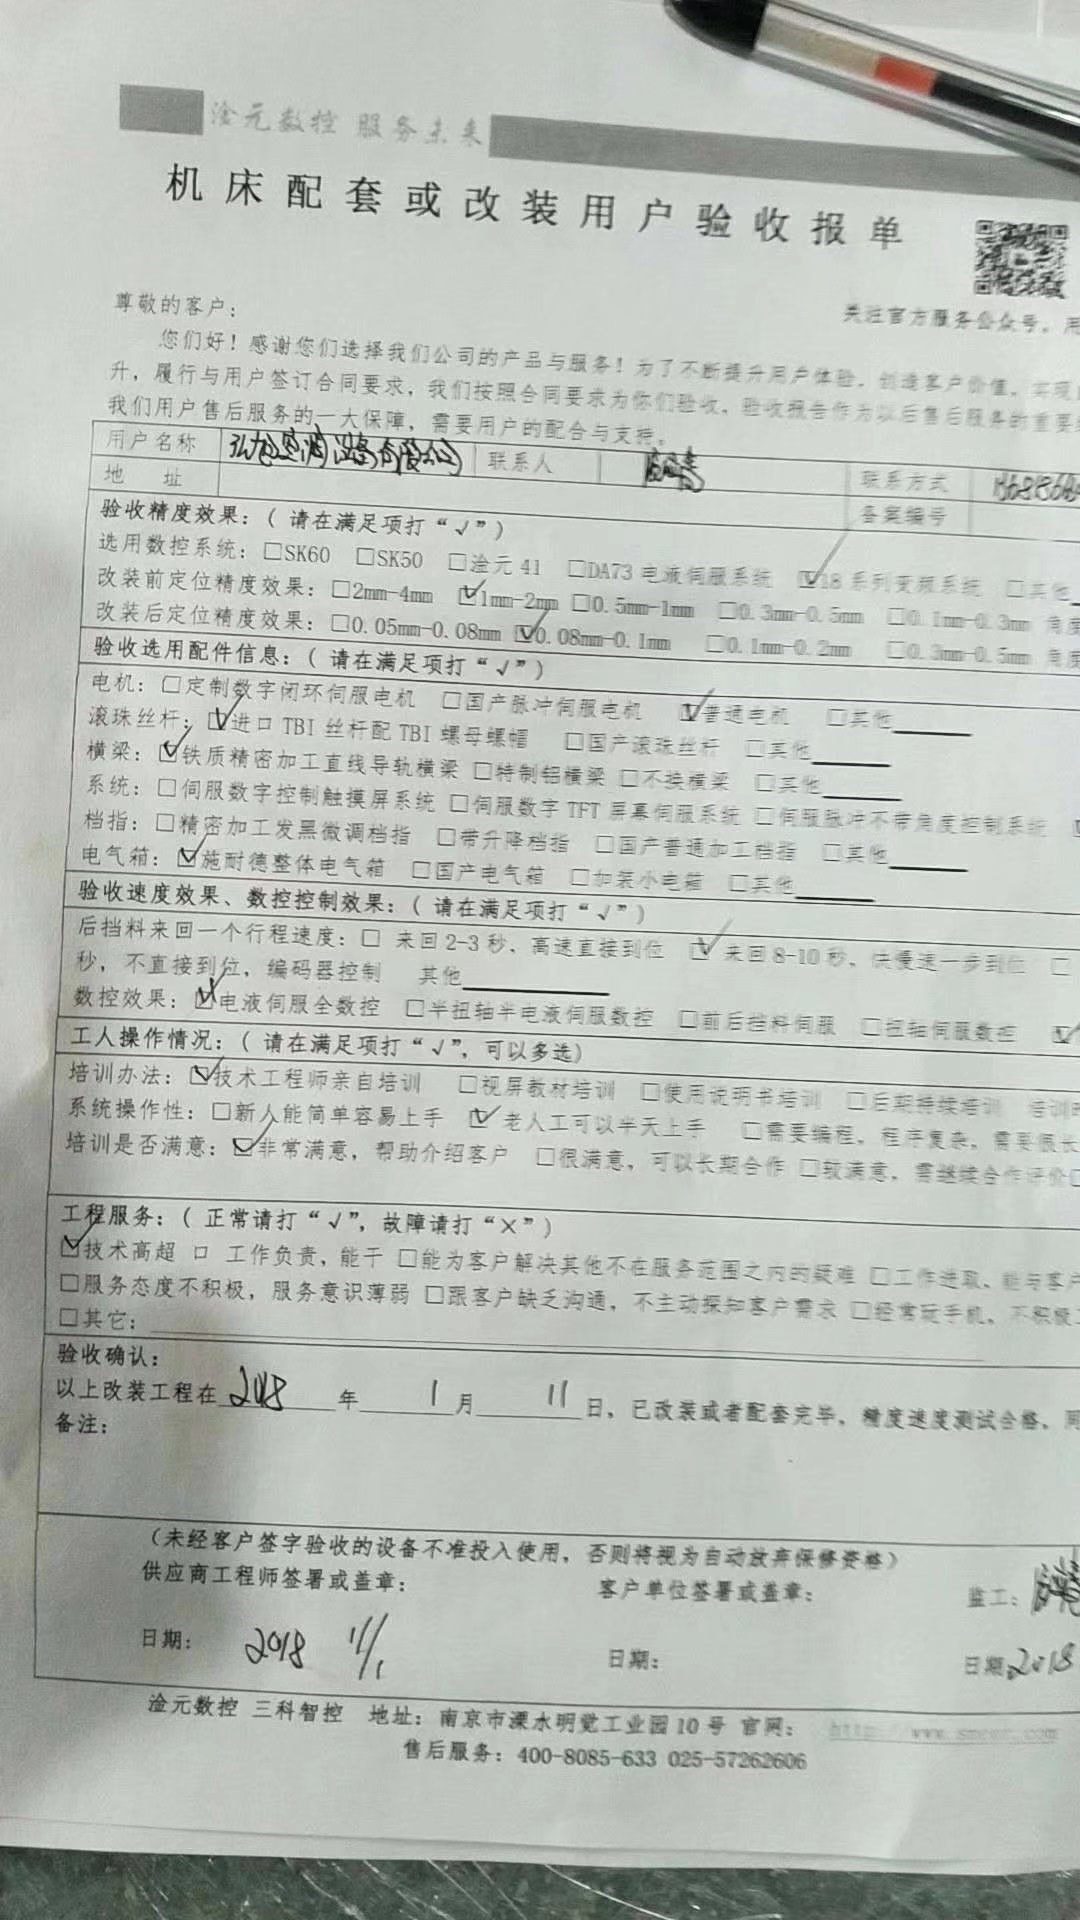 淦元数控 服务未来
机床配套或改装用户验收报单
关注官方服务公众号，用
尊敬的客户：
您们好！感谢您们选择我们公司的产品与服务！为了不断提升用户体验，创造客户价值，实现
升，履行与用户签订合同要求，我们按照合同要求为你们验收，验收报告作为以后售后服务的重要
我们用户售后服务的一大保障，需要用户的配合与支持。
用户名称 联系人 联系方式
地 址 备案编号
验收精度效果：（请在满足项打“√”）
选用数控系统：□SK60 □SK50 □淦元41 □DA73电液伺服系统 ☑18系列变频系统 □其他
改装前定位精度效果：□2mm-4mm ☑1mm-2mm □0.5mm-1mm □0.3mm-0.5mm □0.1mm-0.3mm 角度
改装后定位精度效果：□0.05mm-0.08mm ☑0.08mm-0.1mm □0.1mm-0.2mm □0.3mm-0.5mm 角度
验收选用配件信息：（请在满足项打“√”）
电机：□定制数字闭环伺服电机 □国产脉冲伺服电机 ☑普通电机 □其他
滚珠丝杆：☑进口TBI丝杆配TBI螺母螺帽 □国产滚珠丝杆 □其他
横梁：☑铁质精密加工直线导轨横梁 □特制铝横梁 □不换横梁 □其他
系统：□伺服数字控制触摸屏系统 □伺服数字TFT屏幕伺服系统 □伺服脉冲不带角度控制系统
档指：□精密加工发黑微调档指 □带升降档指 □国产普通加工档指 □其他
电气箱：☑施耐德整体电气箱 □国产电气箱 □加装小电箱 □其他
验收速度效果、数控控制效果：（请在满足项打“√”）
后挡料来回一个行程速度：□ 来回2-3秒、高速直接到位 ☑来回8-10秒、快慢速一步到位 □
秒，不直接到位，编码器控制 其他
数控效果：☑电液伺服全数控 □半扭轴半电液伺服数控 □前后挡料伺服 □扭轴伺服数控 ☑
工人操作情况：（请在满足项打“√”，可以多选）
培训办法：☑技术工程师亲自培训 □视屏教材培训 □使用说明书培训 □后期持续培训 培训
系统操作性：□新人能简单容易上手 ☑老人工可以半天上手 □需要编程，程序复杂，需要很长
培训是否满意：☑非常满意，帮助介绍客户 □很满意，可以长期合作 □较满意，需继续合作评价□
工程服务：（正常请打“√”，故障请打“×”）
☑技术高超 □ 工作负责，能干 □能为客户解决其他不在服务范围之内的疑难 □工作进取、能与客户
□服务态度不积极，服务意识薄弱 □跟客户缺乏沟通，不主动探知客户需求 □经常玩手机，不积极
□其它：
验收确认：
以上改装工程在2018年1月11日，已改装或者配套完毕，精度速度测试合格，同
备注：
（未经客户签字验收的设备不准投入使用，否则将视为自动放弃保修资格）
供应商工程师签署或盖章： 客户单位签署或盖章： 监工：
日期：2018 1/11 日期： 日期：2018
淦元数控 三科智控 地址：南京市溧水明觉工业园10号 官网：
售后服务：400-8085-633 025-57262606